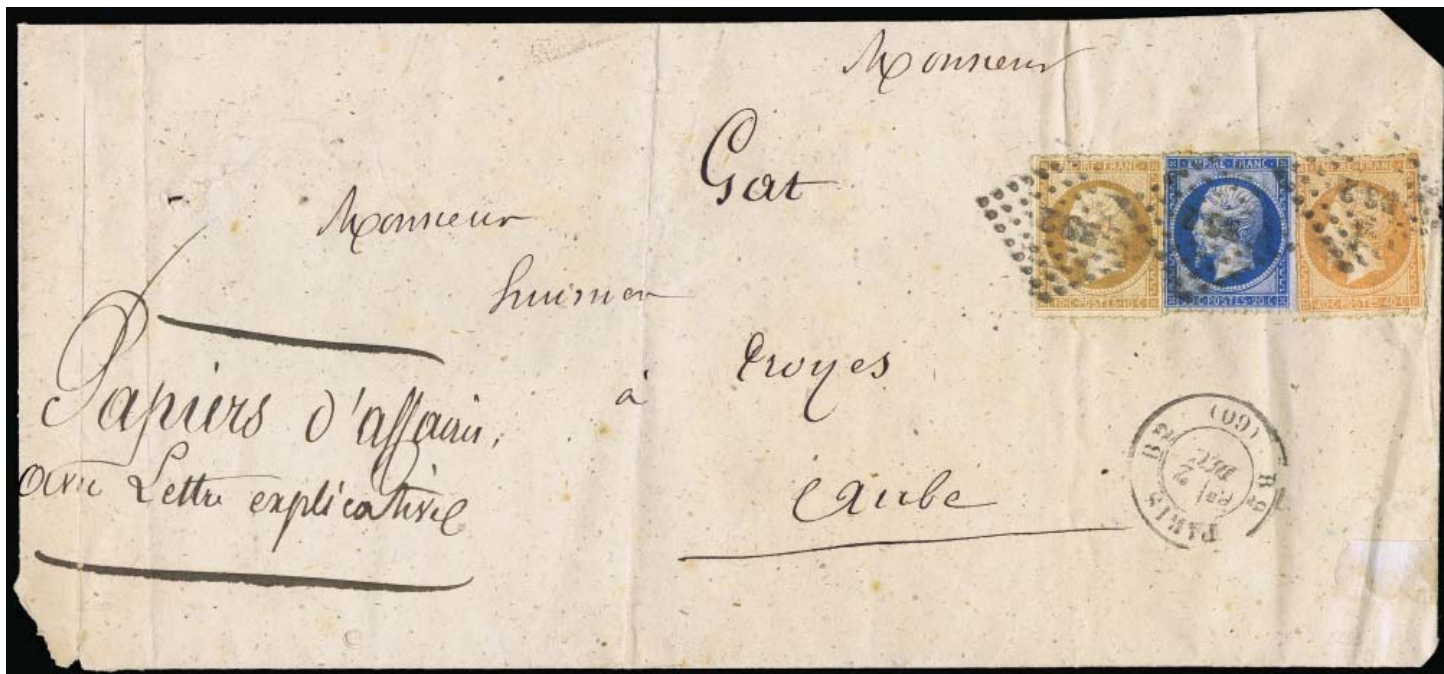 Monsieur
Gat
Monsieur
huissier
à Troyes
(Aube
Papiers d'affaires,
avec Lettre explicative
EMPIRE · FRANC
10 · C · POSTES · 10 · C
EMPIRE · FRANC
20 · C · POSTES · 20 · C
EMPIRE · FRANC
40 · C · POSTES · 40 · C
PARIS
(60)
2
DEC.